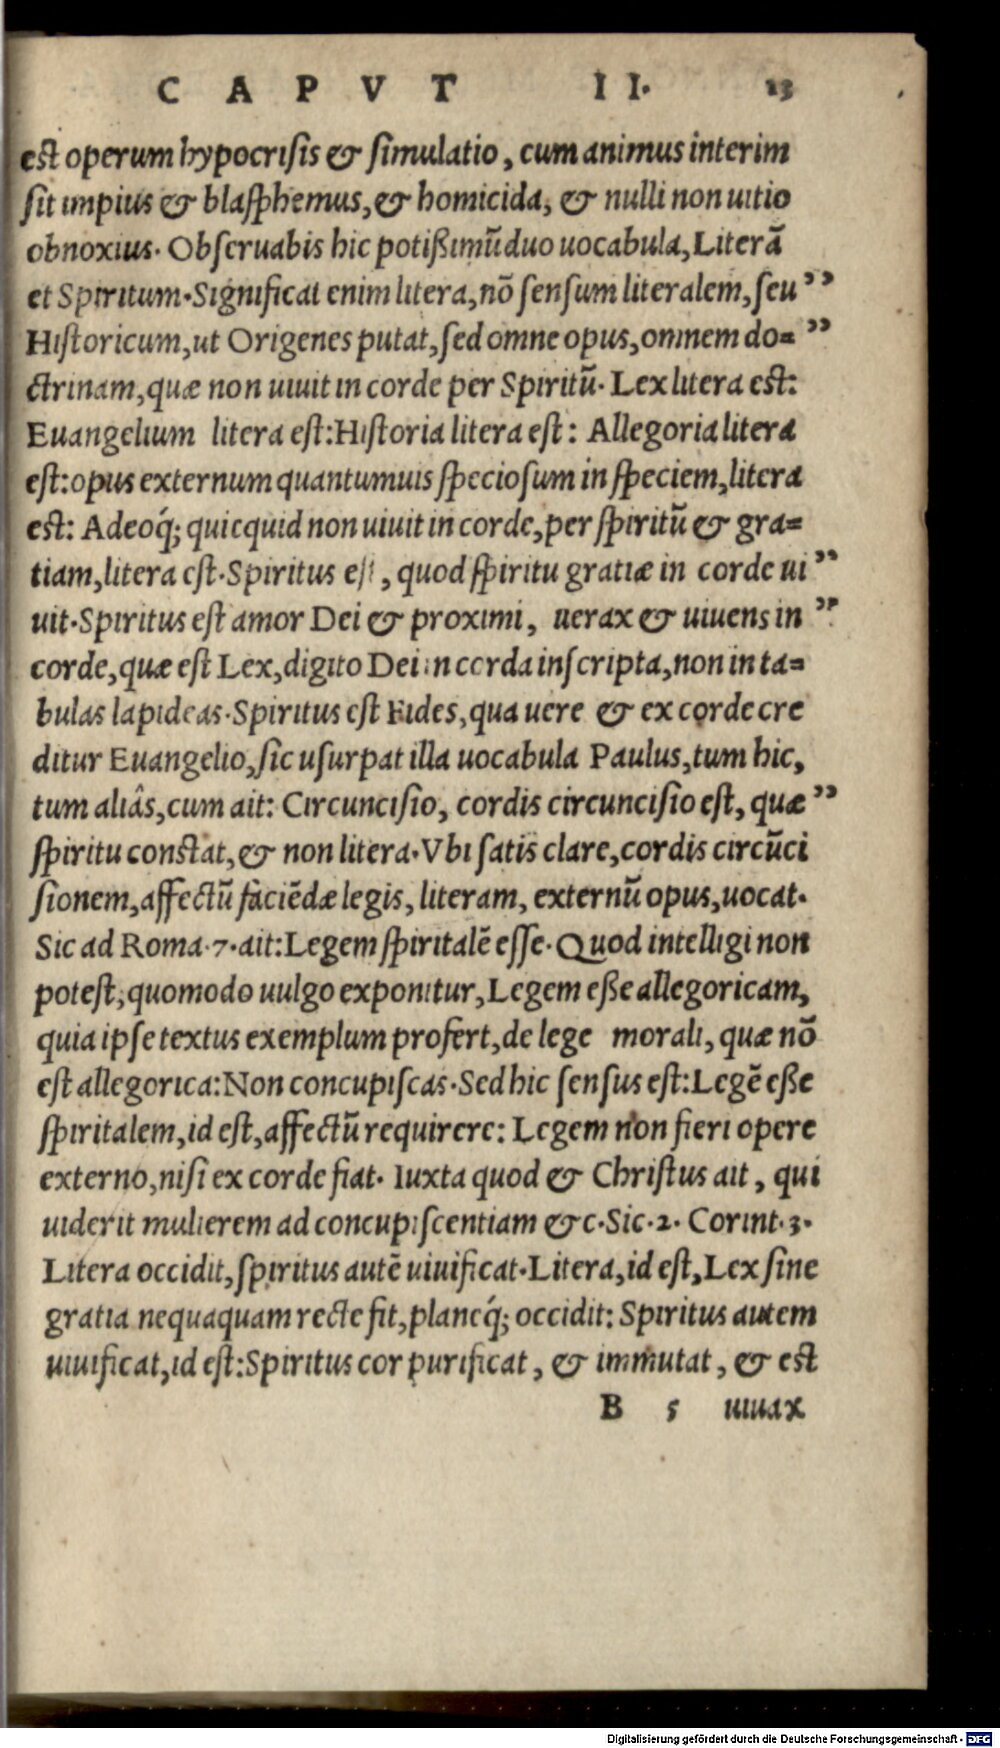 CAPVT II. 13
est operum hypocrisis & simulatio, cum animus interim
sit impius & blasphemus, & homicida, & nulli non uitio
obnoxius. Obseruabis hic potißimũ duo uocabula, Literã
et Spiritum. Significat enim litera, nõ sensum literalem, seu ”
Historicum, ut Origenes putat, sed omne opus, omnem do= ”
ctrinam, quæ non uiuit in corde per Spiritũ. Lex litera est:
Euangelium litera est: Historia litera est: Allegoria litera
est: opus externum quantumuis speciosum in speciem, litera
est: Adeoq́; quicquid non uiuit in corde, per spiritũ & gra=
tiam, litera est. Spiritus est, quod spiritu gratiæ in corde ui ”
uit. Spiritus est amor Dei & proximi, uerax & uiuens in ”
corde, quæ est Lex, digito Dei in corda inscripta, non in ta=
bulas lapideas. Spiritus est Fides, qua uere & ex corde cre
ditur Euangelio, sic usurpat illa uocabula Paulus, tum hic,
tum aliâs, cum ait: Circuncisio, cordis circuncisio est, quæ ”
spiritu constat, & non litera. Vbi satis clare, cordis circũci
sionem, affectũ faciẽdæ legis, literam, externũ opus, uocat.
Sic ad Roma. 7. ait: Legem spiritalẽ esse. Quod intelligi non
potest, quomodo uulgo exponitur, Legem eße allegoricam,
quia ipse textus exemplum profert, de lege morali, quæ nõ
est allegorica: Non concupiscas. Sed hic sensus est: Legẽ eße
spiritalem, id est, affectũ requirere: Legem non fieri opere
externo, nisi ex corde fiat. Iuxta quod & Christus ait, qui
uiderit mulierem ad concupiscentiam &c. Sic. 2. Corint. 3.
Litera occidit, spiritus autẽ uiuificat. Litera, id est, Lex sine
gratia nequaquam recte fit, planeq́; occidit: Spiritus autem
uiuificat, id est: Spiritus cor purificat, & immutat, & est
B 5 uiuax
Digitalisierung gefördert durch die Deutsche Forschungsgemeinschaft - DFG